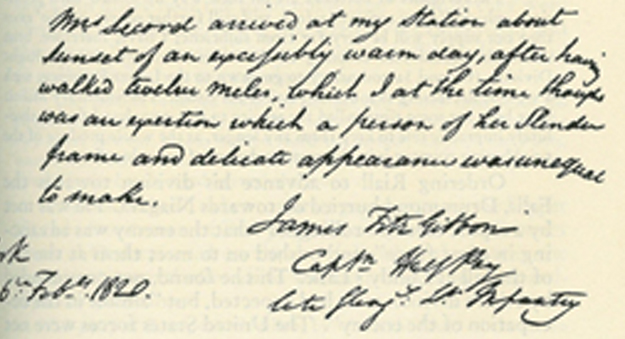 Mrs Secord arrived at my Station about
sunset of an excessively warm day, after having
walked twelve miles, which I at the time thought
was an exertion which a person of her slender
frame and delicate appearance was unequal
to make.
James FitzGibbon
Captn Half Pay
late Lt Infantry
6th Feby 1820